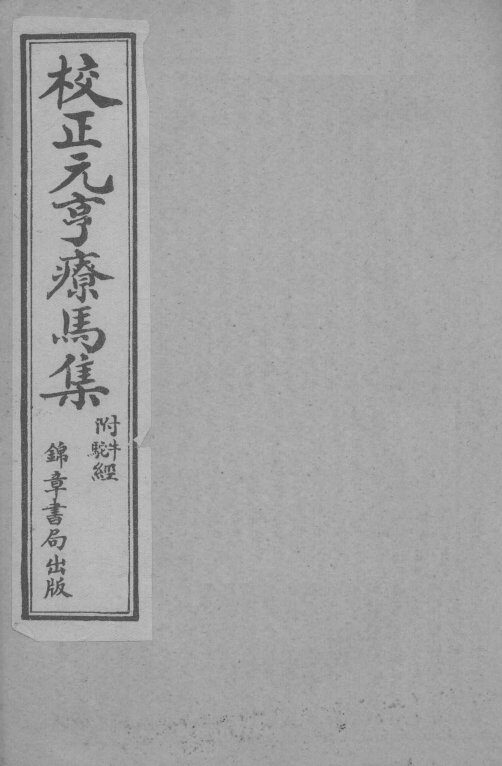 校正元亨療馬集
附牛駝經
錦章書局出版